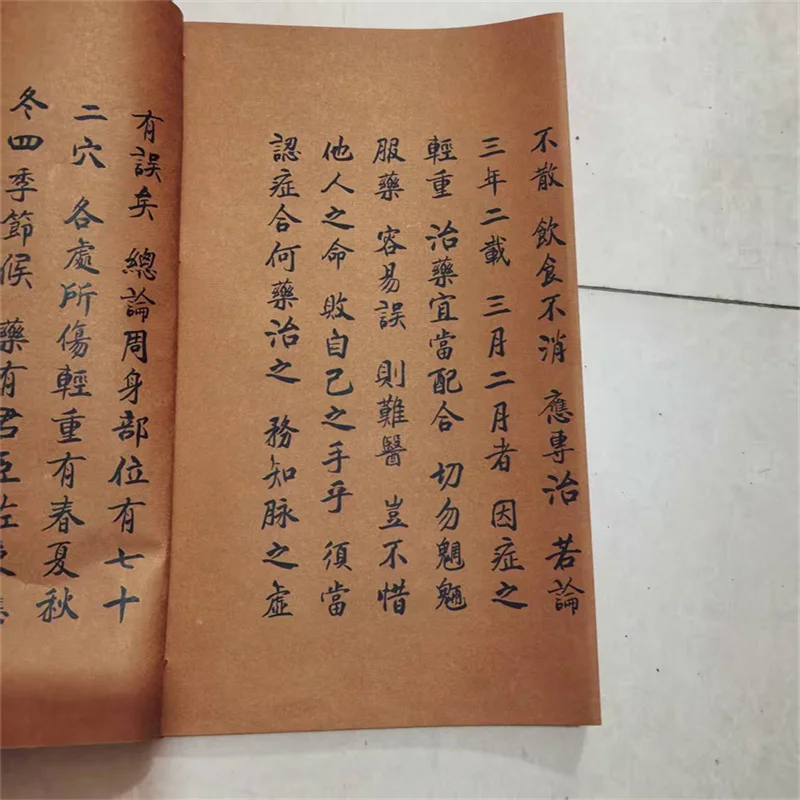 不散 飲食不消 應專治 若論
三年二載 三月二月者 因症之
輕重 治藥宜當配合 切勿魍魎
服藥 容易誤 則難醫 豈不惜
他人之命 敗自己之手乎 須當
認症合何藥治之 務知脉之虛
有誤矣 總論周身部位有七十
二穴 各處所傷輕重有春夏秋
冬四季節候 藥有君臣佐